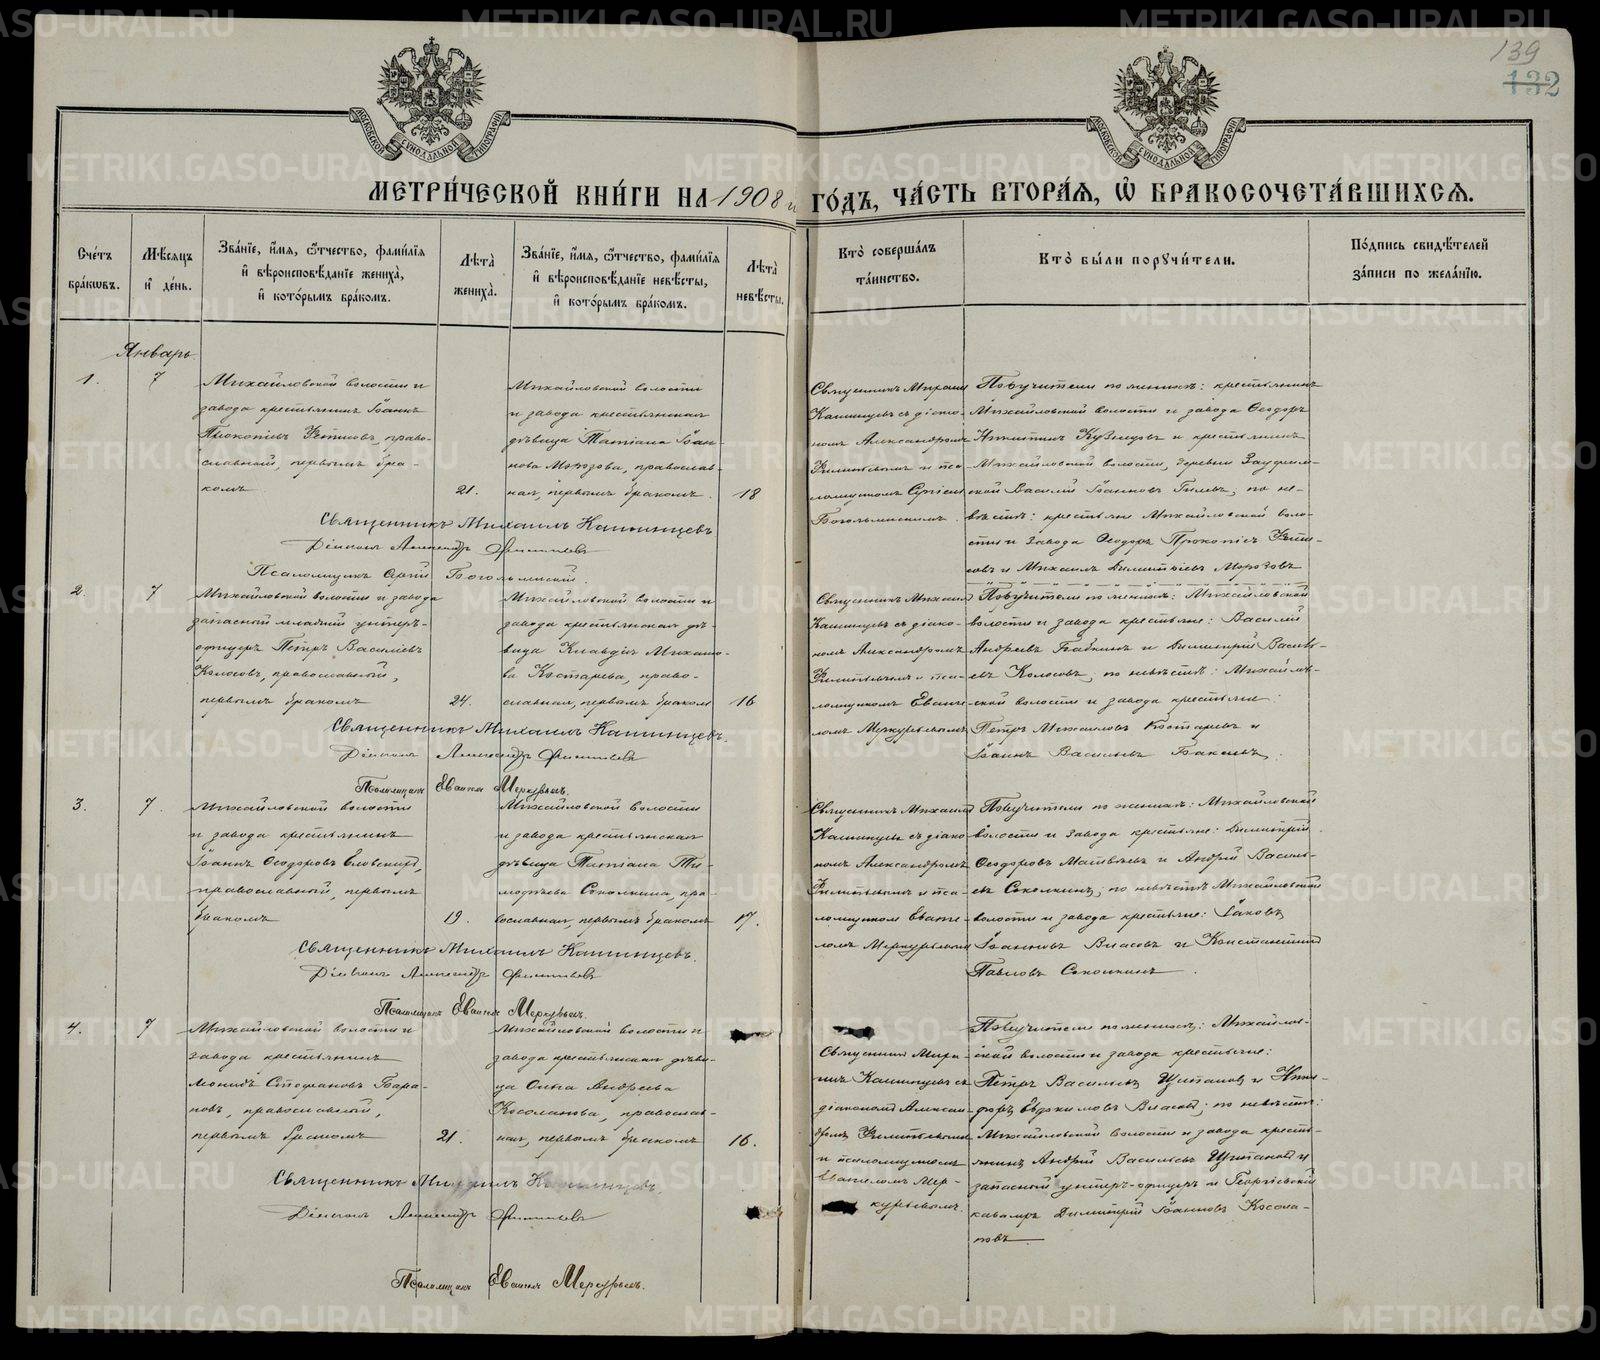 139
132
МЕТРИ́ЧЕСКОЙ КНИ́ГИ НА 1908 й ГО́ДЪ, ЧА́СТЬ ВТОРА́Я, Ѡ БРАКОСОЧЕТА́ВШИХСЯ.
Сче́тъ бра́кωвъ.
Мѣ́сяцъ и҆ де́нь.
Зва́нїе, и҆́мя, ѻ҆́тчество, фами́лїя и҆ вѣроисповѣ́данїе жениха̀, и҆ кото́рымъ бра́комъ.
Лѣ́та жениха̀.
Зва́нїе, и҆́мя, ѻ҆́тчество, фами́лїя и҆ вѣроисповѣ́данїе невѣ́сты, и҆ кото́рымъ бра́комъ.
Лѣ́та невѣ́сты.
Кто̀ соверша́лъ та́инство.
Кто̀ бы́ли поручи́тели.
По́дпись свидѣ́телей за́писи по жела́нїю.
Январь
1.
7
Михайловской волости и
завода крестьянинъ Іоаннъ
Прокопіевъ право-
славный, первымъ бра-
комъ
21.
Михайловской волости
и завода крестьянская
дѣвица Татіана Іоан-
нова Морозова, православ-
ная, первымъ бракомъ.
18
Священникъ Михаилъ
Каменцевъ съ діако-
номъ Александромъ
Филипьевымъ и пса-
ломщикомъ
Богомъ
Поручители по женихѣ: крестьянинъ
Михайловской волости и завода Ѳеодоръ
Никитинъ Кузнецовъ и крестьянинъ
Михайловской волости, деревни
Василій Іоанновъ Гилевъ; по не-
вѣстѣ: крестьяне Михайловской воло-
сти и завода Ѳеодоръ Прокопіевъ
и Михаилъ Димитріевъ Морозовъ
Священникъ Михаилъ Каменцевъ
Діаконъ Александръ Филипьевъ
Псаломщикъ
2.
7
Михайловской волости и завода
запасной младшій унтеръ-
офицеръ Петръ Василіевъ
Колосовъ, православный,
первымъ бракомъ
24.
Михайловской волости и
завода крестьянская дѣ-
вица Клавдія Михаило-
ва Костарева, право-
славная, первымъ бракомъ
16
Священникъ Михаилъ
Каменцевъ съ діако-
номъ Александромъ
Филипьевымъ и пса-
ломщикомъ
Меркурьевымъ
Поручители по женихѣ: Михайловской
волости и завода крестьяне: Василій
Андреевъ Бабкинъ и Димитрій Василь-
евъ Колосовъ; по невѣстѣ: Михайлов-
ской волости и завода крестьяне:
Петръ Михаиловъ Костаревъ и
Іоаннъ Васильевъ
Священникъ Михаилъ Каменцевъ.
Діаконъ Александръ Филипьевъ
Псаломщикъ Меркурьевъ.
3.
7.
Михайловской волости
и завода крестьянинъ
Іоаннъ Ѳеодоровъ Еловскихъ,
православный, первымъ
бракомъ
19.
Михайловской волости
и завода крестьянская
дѣвица Татіана Ти-
моѳеева Соколкина, пра-
вославная, первымъ бракомъ
17.
Священникъ Михаилъ
Каменцевъ съ діако-
номъ Александромъ
Филипьевымъ и пса-
ломщикомъ
Меркурьевымъ
Поручители по женихѣ: Михайловской
волости и завода крестьяне: Димитрій
Ѳеодоровъ Матвѣевъ и Андрей Василь-
евъ Соколкинъ; по невѣстѣ Михайловской
волости и завода крестьяне: Іаковъ
Іоанновъ Власовъ и Константинъ
Павловъ Соколкинъ.
Священникъ Михаилъ Каменцевъ.
Діаконъ Александръ Филипьевъ
Псаломщикъ Меркурьевъ.
4.
7
Михайловской волости и
завода крестьянинъ
Леонидъ Стефановъ Бара-
новъ, православный,
первымъ бракомъ
21.
Михайловской волости и
завода крестьянская дѣви-
ца Анна Андреева
Косолапова, православ-
ная, первымъ бракомъ
16.
Священникъ Миха-
илъ Каменцевъ съ
діакономъ Алексан-
дромъ Филипьевымъ
и псаломщикомъ
Мер-
курьевымъ.
Поручители по женихѣ: Михайлов-
ской волости и завода крестьяне:
Петръ Васильевъ Щипановъ и Ники-
форъ Евдокимовъ Власовъ; по невѣстѣ:
Михайловской волости и завода кресть-
янинъ Андрей Васильевъ Щипановъ и
запасной унтеръ-офицеръ и Георгіевскій
кавалеръ Димитрій Іоанновъ Косола-
повъ
Священникъ Михаилъ Каменцевъ.
Діаконъ Александръ Филипьевъ
Псаломщикъ Меркурьевъ.
METRIKI.GASO-URAL.RU